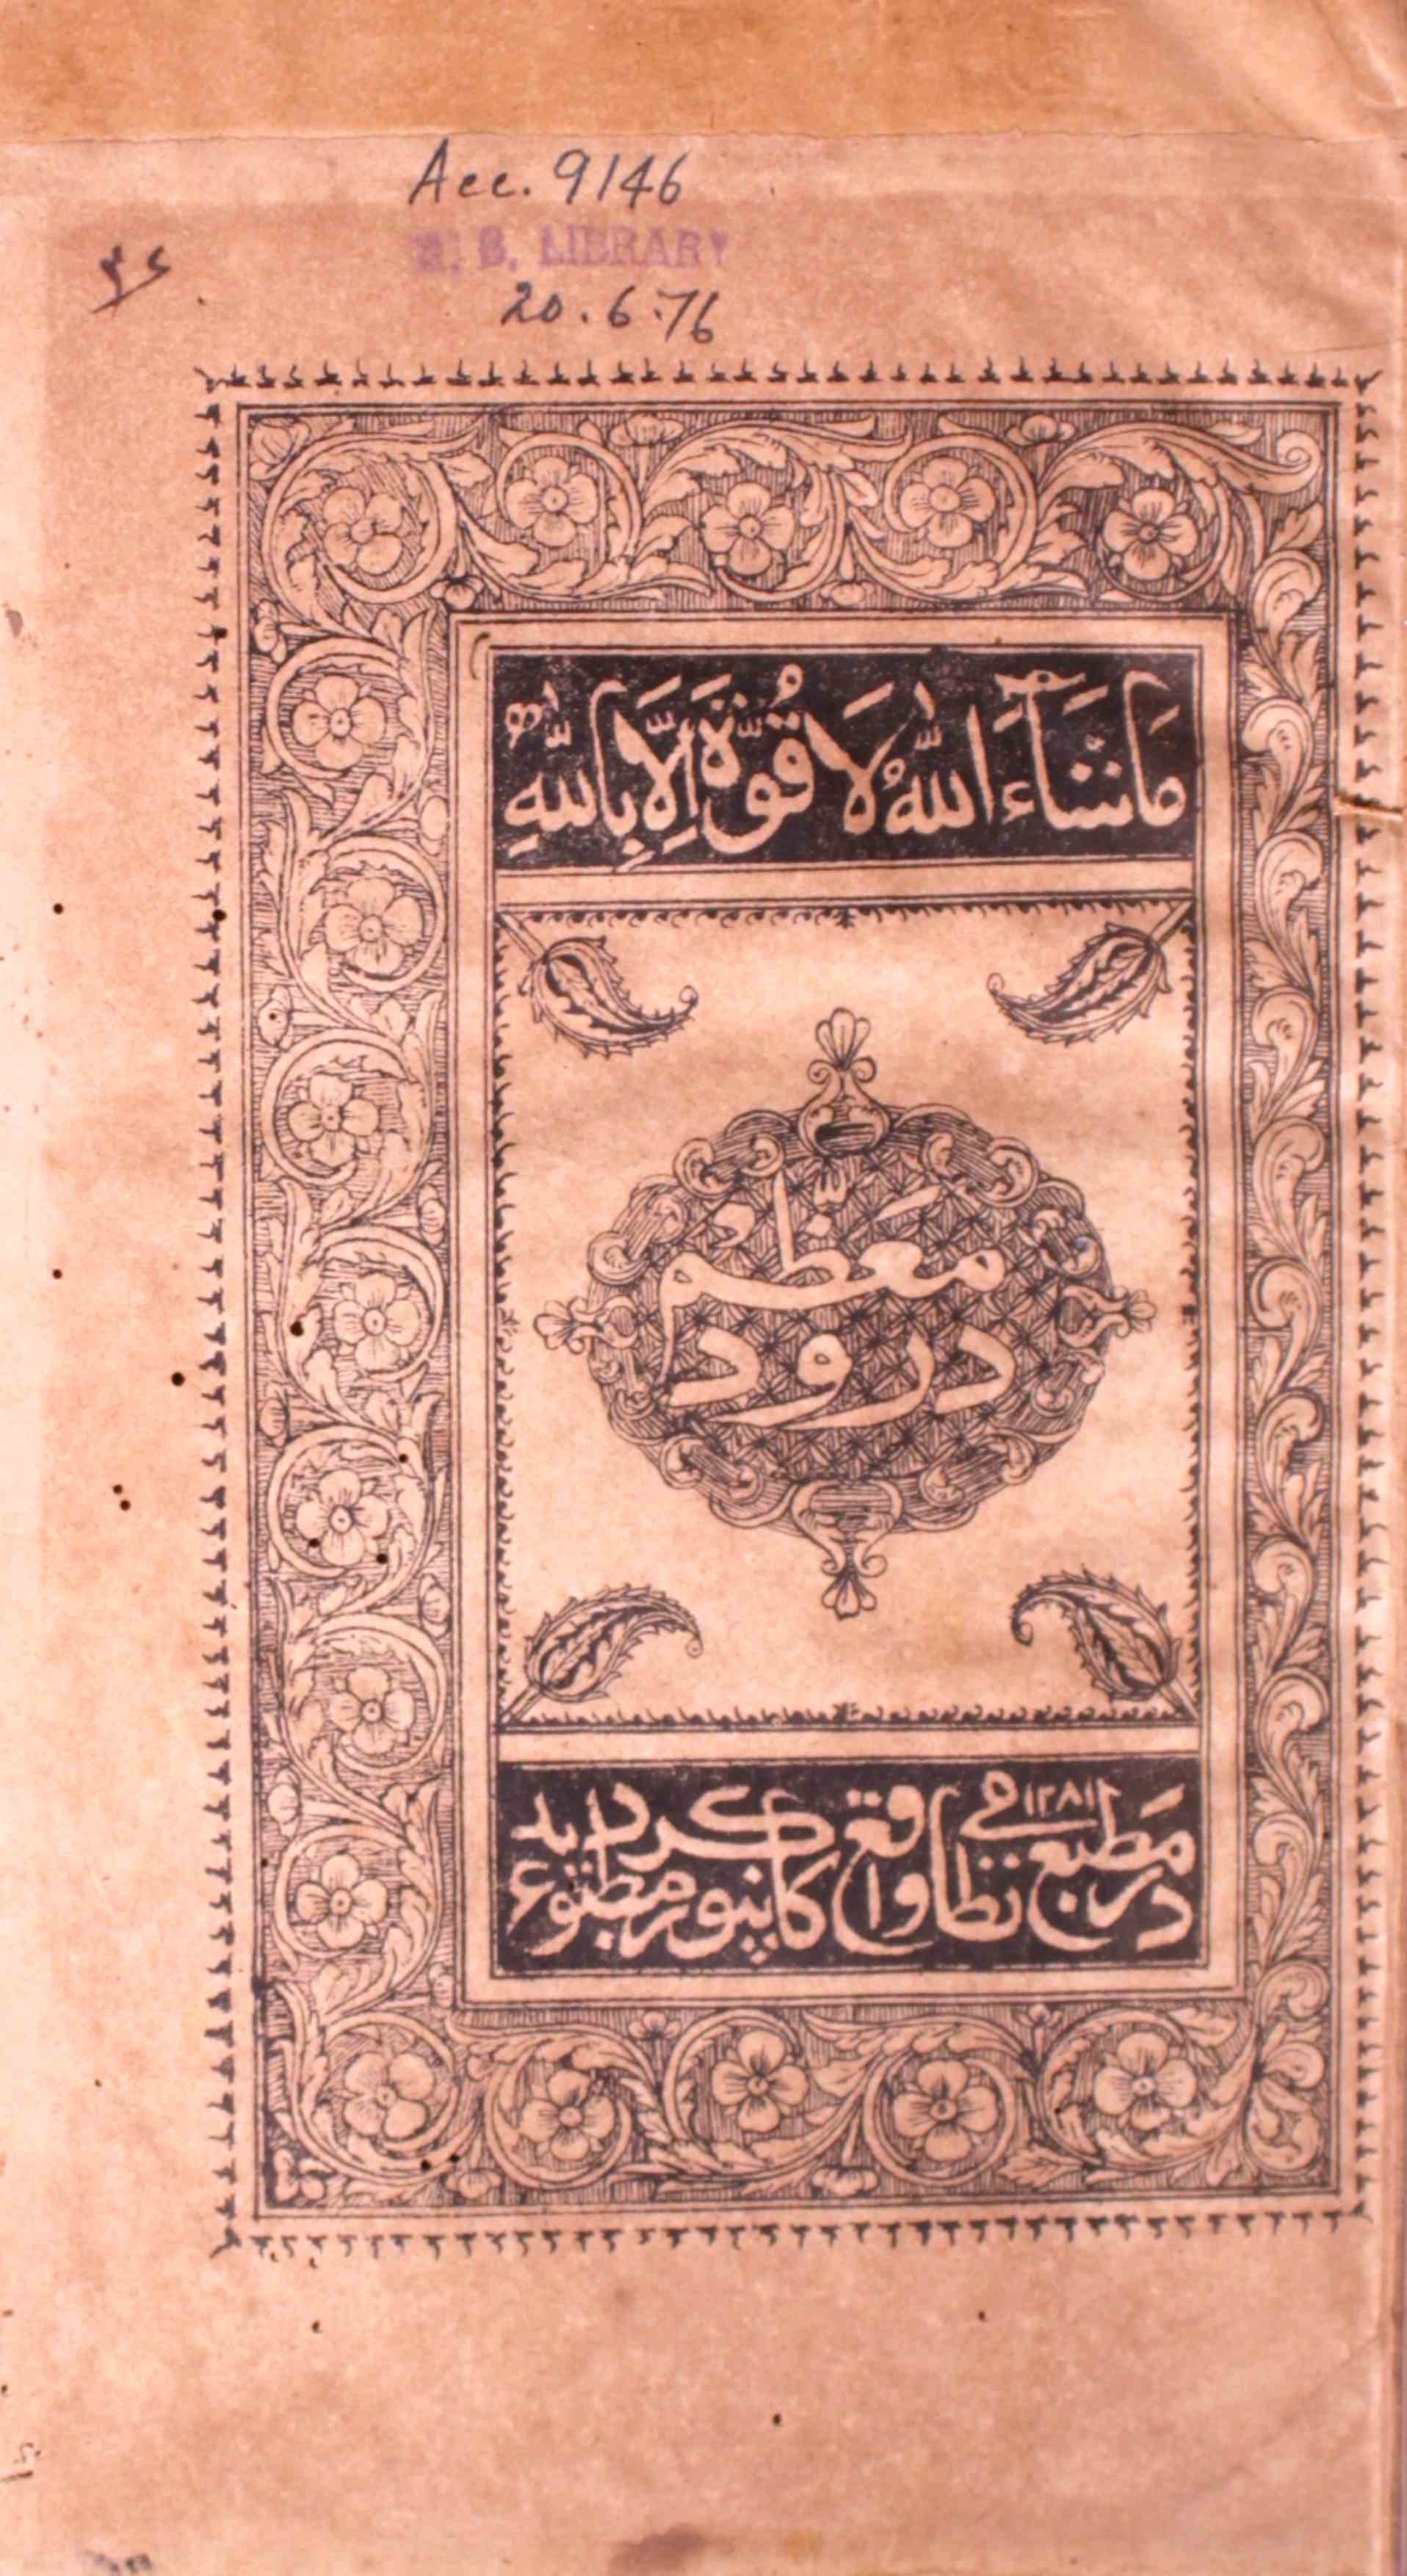 Acc. 9146
LIBRARY
20.6.76
مَا شَآءَ اللّٰهُ لَا قُوَّةَ اِلَّا بِاللّٰهِ
معظم
درود
در مطبع نظامی واقع کانپور مطبوع گردید
۱۲۸۱